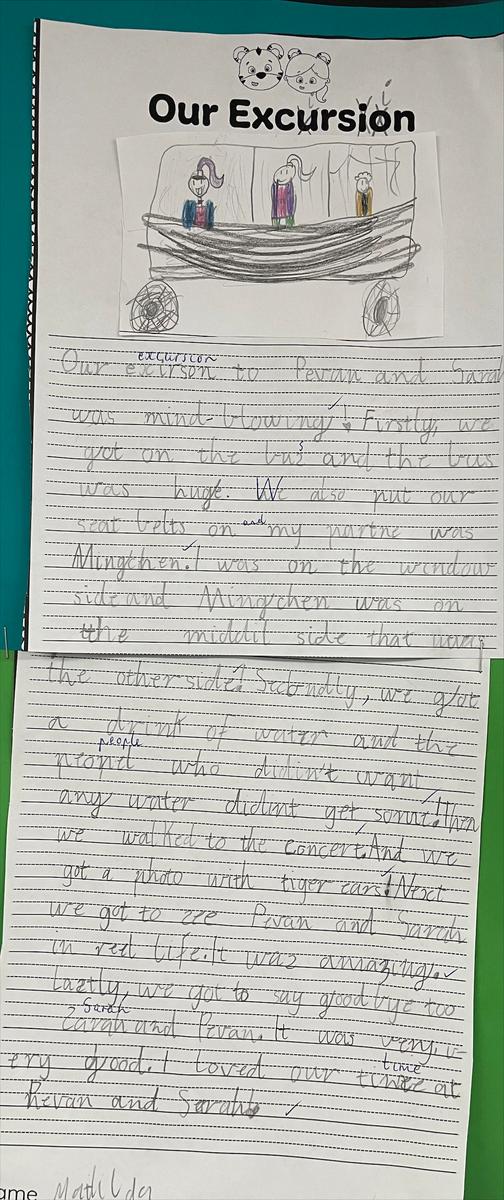 Our Excursion
excursion
Our excirson to Pevan and Sara
was mind-blowing! Firstly, we
got on the bus and the bus
was huge. We also put our
seat belts on and my partne was
Mingchen. I was on the window
side and Mingchen was on
the middil side that was
the other side! Secondly, we got
a drink of water and the
people
peopel who didin't want
any water didint get some! Then
we walked to the concert. And we
got a photo with tiger ears! Next
we got to zee Pevan and Sarah
in reel life. It waz amazing.
Laztly, we got to say goodbye too
Sarah
Zarah and Pevan. It was very, v-
ery good. I loved our time at
time
Pevan and Sarah
ame Matilda